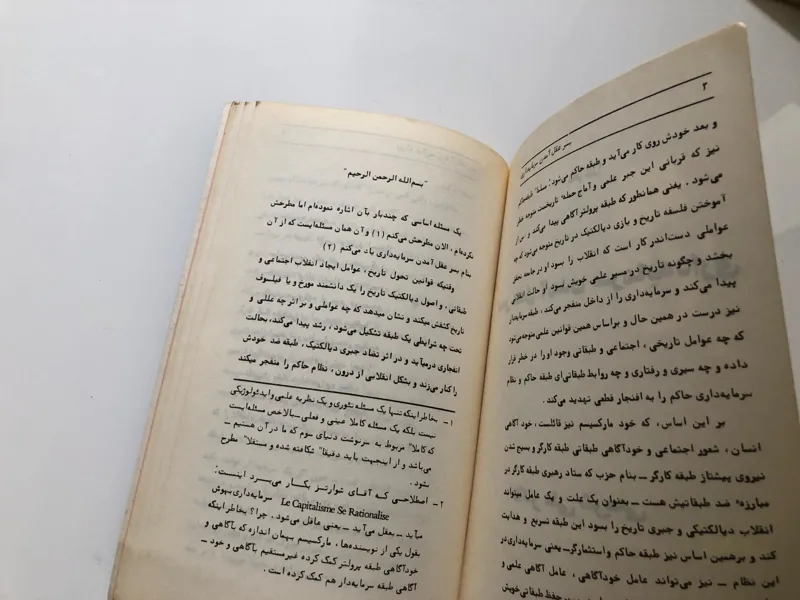 "بسم‌الله الرحمن الرحیم"
یک مسئله اساسی که چندبار بآن اشاره نموده‌ام اما مطرحش
نکرده‌ام ، الان مطرحش می‌کنم (۱) و آن همان مسئله‌ایست که از آن
بنام بسر عقل آمدن سرمایه‌داری یاد می‌کنم (۲)
وقتیکه قوانین تحول تاریخ، عوامل ایجاد انقلاب اجتماعی و
طبقاتی، و اصول دیالکتیک تاریخ را یک دانشمند مورخ و یا فیلسوف
تاریخ کشف میکند و نشان میدهد که چه عواملی و بر اثر چه عللی و
تحت چه شرایطی یک طبقه تشکیل می‌شود ، رشد پیدا می‌کند، بحالت
انفجاری درمیآید و در اثر تضاد جبری دیالکتیک ، طبقه ضد خودش
را کنار می‌زند و بشکل انقلابی از درون ، نظام حاکم را منفجر میکند
۱ – بخاطر اینکه تنها یک مسئله تئوری و یک نظریه علمی و ایدئولوژیکی
نیست بلکه یک مسئله کاملا عینی و فعلی – بالاخص مسئله‌ایست
که کاملا" مربوط به سرنوشت دنیای سوم که ما در آن هستیم –
می‌باشد و از اینجهت باید دقیقا" شکافته شده و مستقلا" مطرح
شود .
۲ – اصطلاحی که آقای شوارتز بکار می‌برد اینست:
Le Capitalisme Se Rationalise سرمایه‌داری بهوش
میآید – بعقل می‌آید – یعنی عاقل می‌شود . چرا؟ بخاطر اینکه
بقول یکی از نویسنده‌ها ، مارکسیسم بهمان اندازه که بآگاهی و
خودآگاهی طبقه پرولتر کمک کرده غیرمستقیم بآگاهی و خود –
آگاهی طبقه سرمایه‌دار هم کمک کرده است .
۲
بسر عقل آمدن سرمایه‌داری
و بعد خودش روی کار می‌آید و طبقه حاکم می‌شود ؛ مسلما"
نیز که قربانی این جبر علمی و آماج حمله تاریخست متوجه
می‌شود . یعنی همانطور که طبقه پرولتر آگاهی پیدا می‌کند و پس از
آموختن فلسفه تاریخ و بازی دیالکتیک در تاریخ متوجه می‌شود که چه
عواملی دست‌اندر کار است که انقلاب را بسود او در جامعه تحقق
بخشد و چگونه تاریخ در مسیر علمی خویش بسود او حالت انقلابی
پیدا می‌کند و سرمایه‌داری را از داخل منفجر می‌کند ، طبقه سرمایه‌دار
نیز درست در همین حال و براساس همین قوانین علمی متوجه می‌شود
که چه عوامل تاریخی ، اجتماعی و طبقاتی وجود او را در خطر قرار
داده و چه سیری و رفتاری و چه روابط طبقاتی‌ای طبقه حاکم و نظام
سرمایه‌داری حاکم را به انفجار قطعی تهدید می‌کند .
بر این اساس، که خود مارکسیسم نیز قائلست ، خود آگاهی
انسان ، شعور اجتماعی و خودآگاهی طبقاتی طبقه کارگر و بسیج شدن
نیروی پیشتاز طبقه کارگر – بنام حزب که ستاد رهبری طبقه کارگر در
مبارزه ضد طبقاتیش هست – بعنوان یک علت و یک عامل میتواند
انقلاب دیالکتیکی و جبری تاریخ را بسود این طبقه تسریع و هدایت
کند و برهمین اساس نیز طبقه حاکم و استثمارگر – یعنی سرمایه‌داری در
این نظام – نیز می‌تواند عامل خودآگاهی ، عامل آگاهی علمی و
حفظ طبقاتی خویش